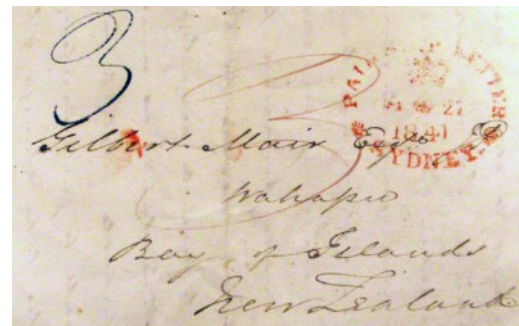 3
3
PAID SHIP LETTER
27
1841
SYDNEY
Gilbert Mair Esqre JP
Wahapu
Bay of Islands
New Zealand